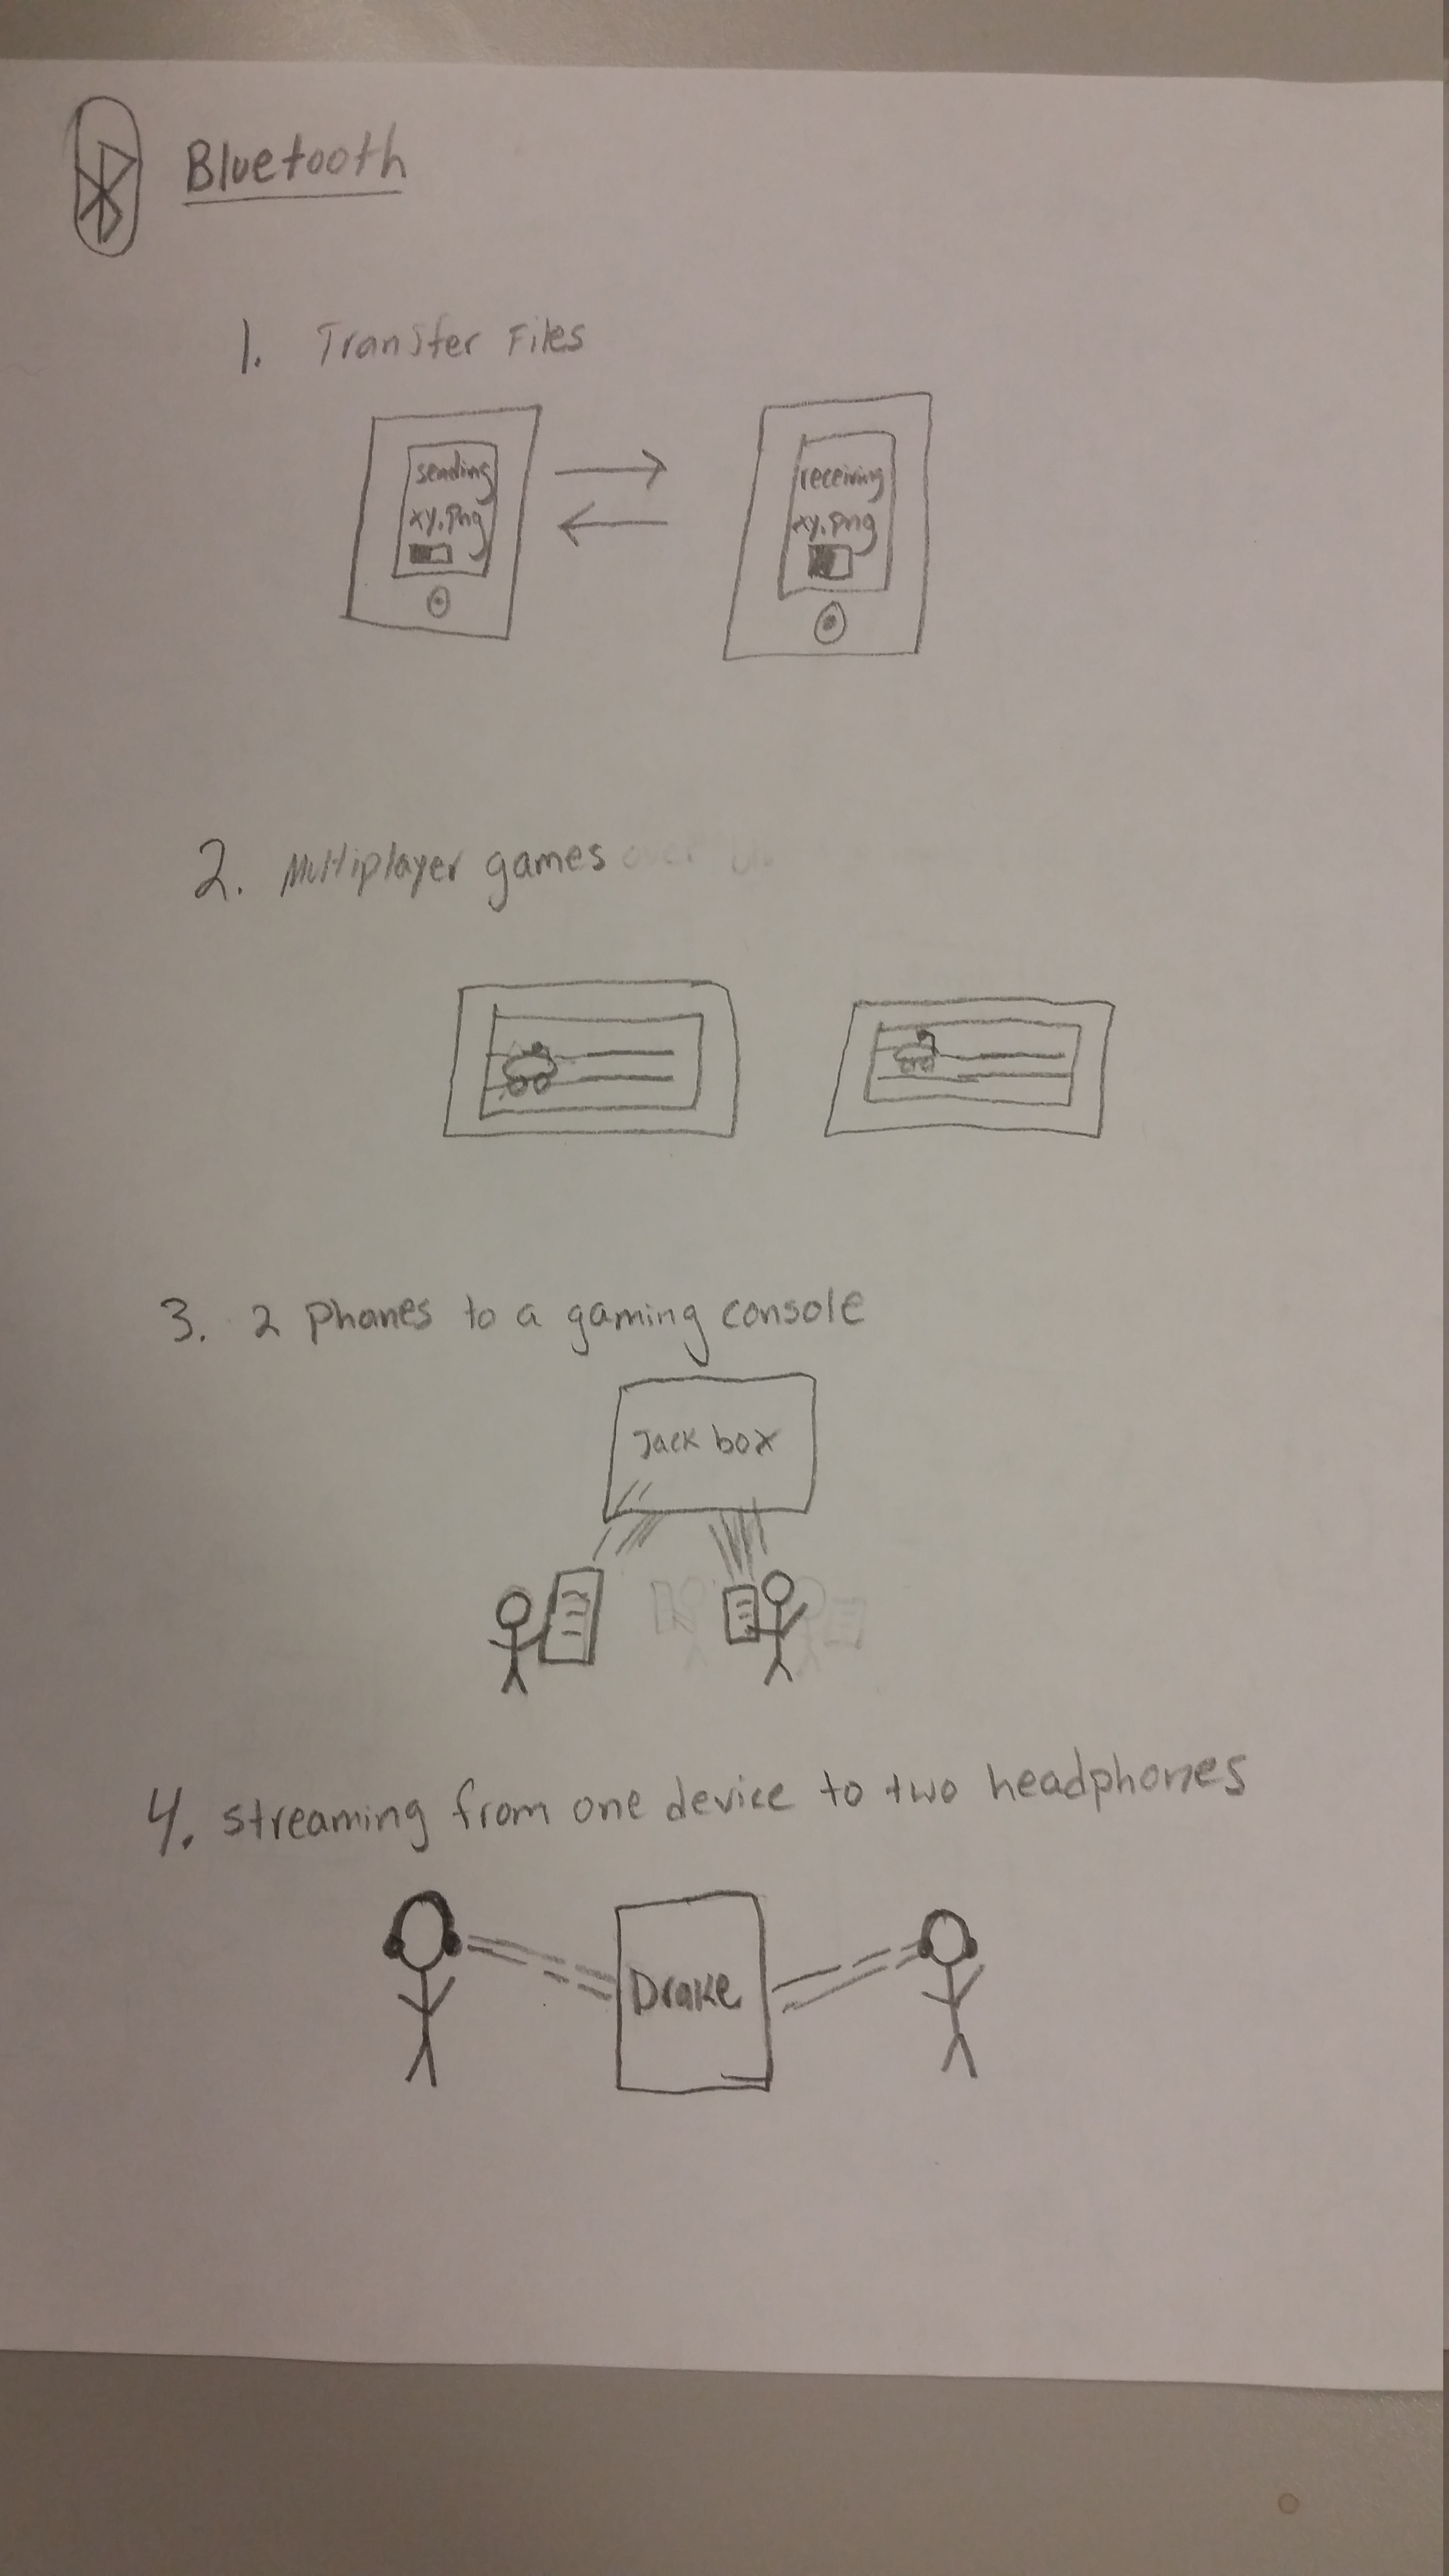 Bluetooth
1. Transfer Files
sending
xy.png
receiving
xy.png
2. Multiplayer games over
3. 2 phones to a gaming console
Jack box
4. streaming from one device to two headphones
Drake